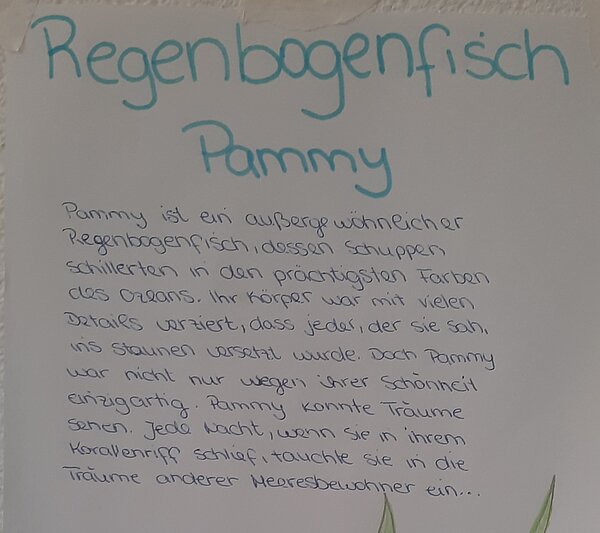 Regenbogenfisch
Pammy
Pammy ist ein außergewöhnlicher
Regenbogenfisch, dessen Schuppen
schillerten in den prächtigsten Farben
des Ozeans. Ihr Körper war mit vielen
Details verziert, dass jeder, der sie sah,
ins Staunen versetzt wurde. Doch Pammy
war nicht nur wegen ihrer Schönheit
einzigartig. Pammy konnte Träume
sehen. Jede Nacht, wenn sie in ihrem
Korallenriff schlief, tauchte sie in die
Träume anderer Meeresbewohner ein...